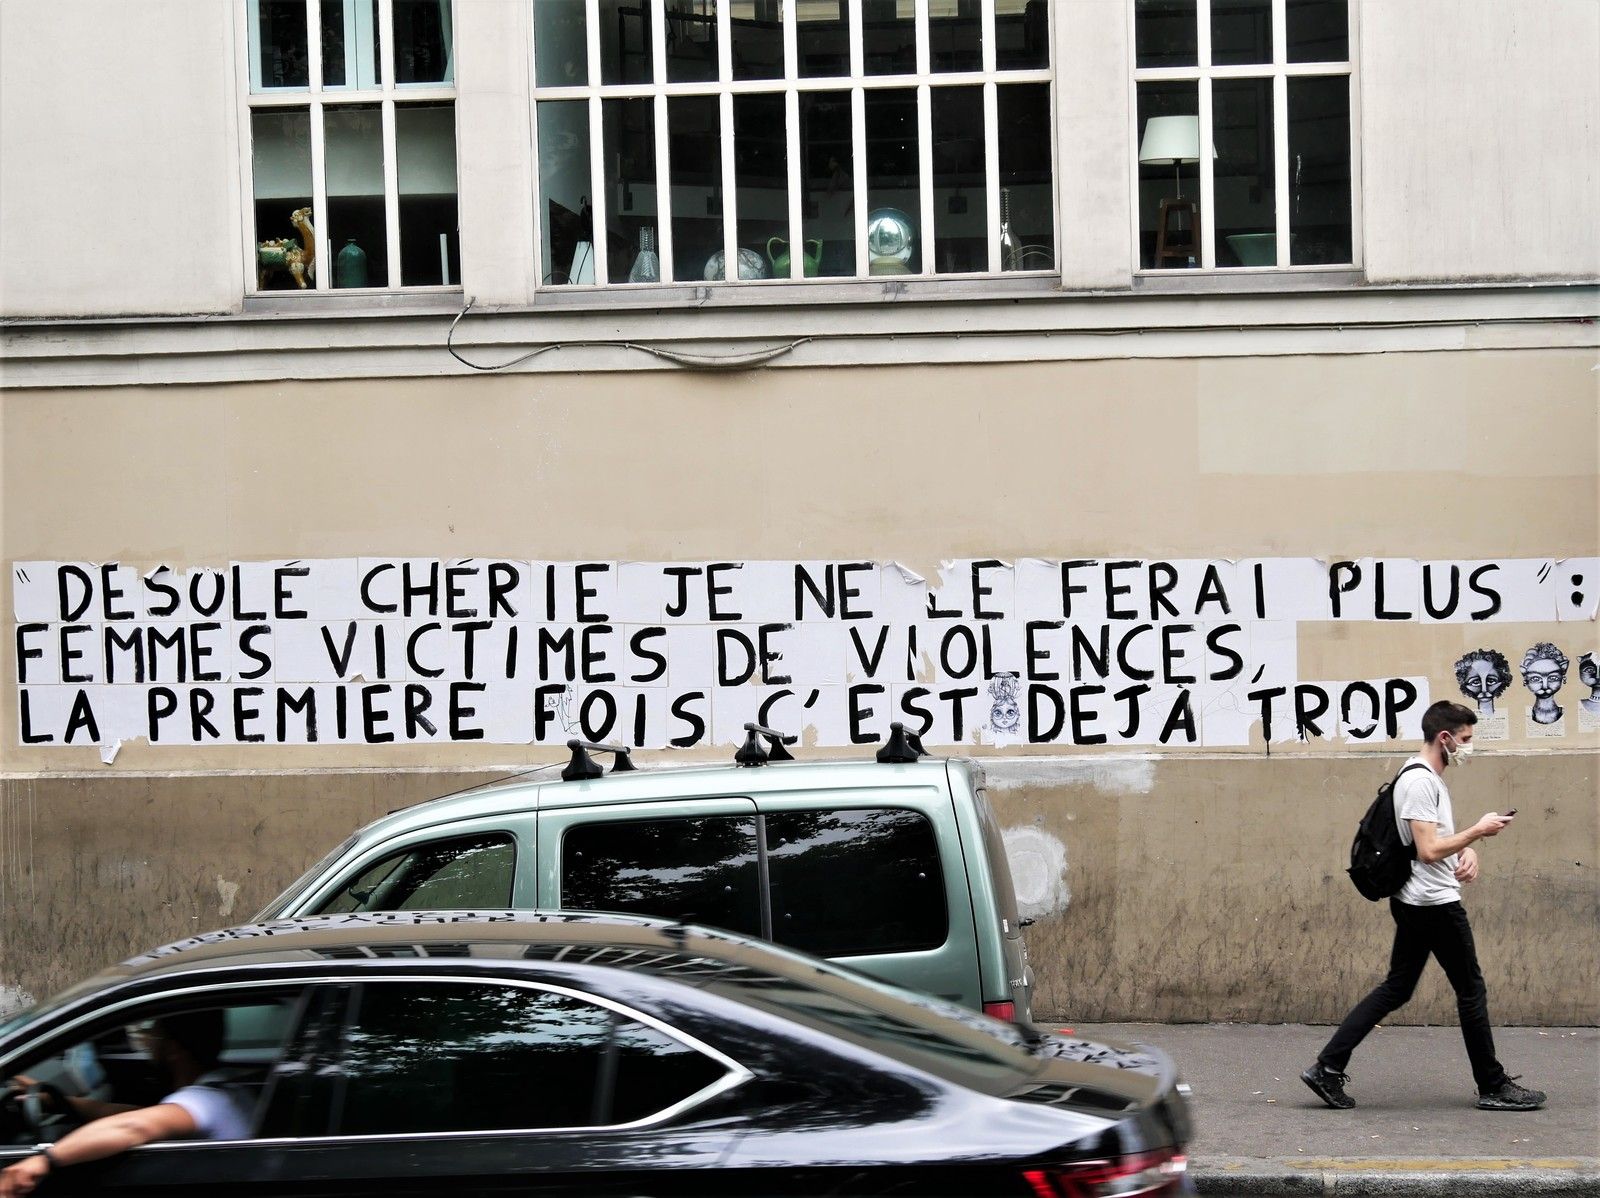 " DESOLÉ CHÉRIE JE NE LE FERAI PLUS " :
FEMMES VICTIMES DE VIOLENCES,
LA PREMIERE FOIS C'EST DEJA TROP